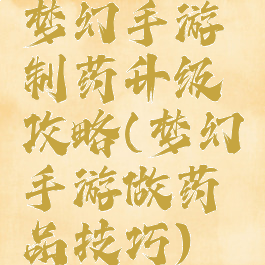 梦幻手游
制药升级
攻略(梦幻
手游做药
品技巧)